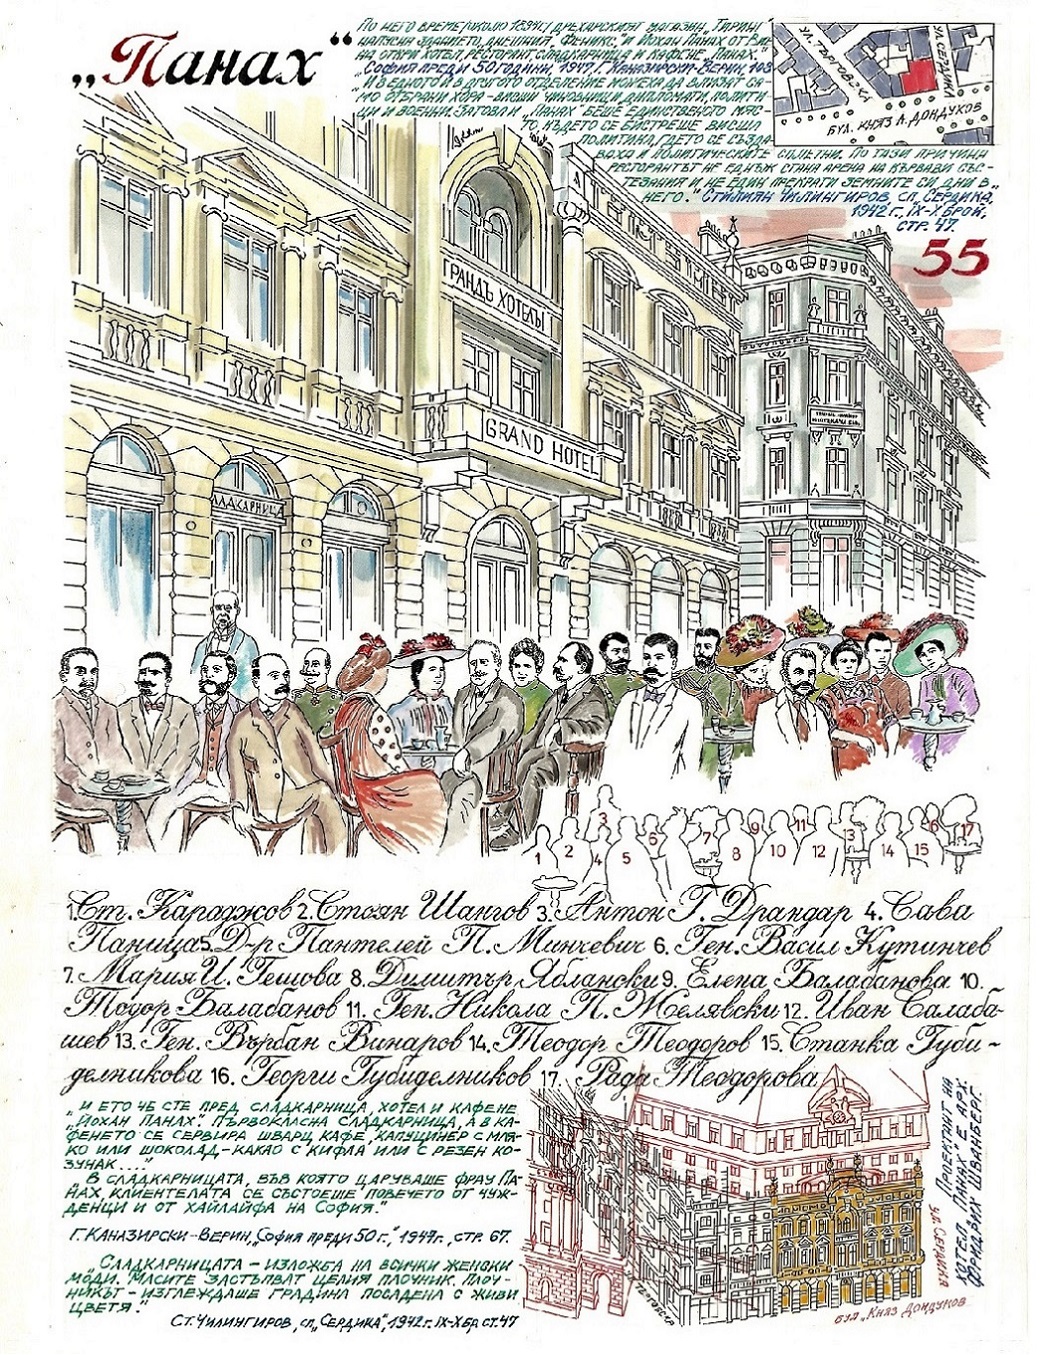 „Панах“
По него време /около 1894г./ дрехарският магазин „Тиринг“
напусна зданието, днешния „Феникс“ и Йохан Панах от Вие-
на откри хотел, ресторант, сладкарница и кафене „Панах“.
„София преди 50 години, 1947 г. Каназирски-Верин, 103
„И в едното и в другото отделение можеха да влизат са-
мо отбрани хора – висши чиновници, дипломати, полити-
ци и военни. Затова и „Панах“ беше единственото мяс-
то където се бистреше висша
политика, гдето се създа-
ваха и политическите сплетни. По тази причина
ресторантът не еднъж стана арена на кървави със-
тезания и не един прекрати земните си дни в
него.“ Стилиян Чилингиров, сп. Сердика,
1942 г., IX-X брой,
стр. 47.
ул. Търговска
ул. Сердика
бул. Княз А. Дондуков
55
ГРАНДЪ ХОТЕЛЪ
GRAND HOTEL
ЛАДКАРНИЦА
1 2 3 4 5 6 7 8 9 10 11 12 13 14 15 16 17
1. Ст. Караджов 2. Стоян Шангов 3. Антон Г. Драндар 4. Сава
Паница 5. Д-р Пантелей П. Минчевич 6. Ген. Васил Кутинчев
7. Мария И. Гешова 8. Димитър Яблански 9. Елена Балабанова 10.
Тодор Балабанов 11. Ген. Никола П. Желявски 12. Иван Салаба-
шев 13. Ген. Върбан Винаров 14. Теодор Теодоров 15. Станка Губи-
делникова 16. Георги Губиделников 17. Рада Теодорова
„И ето че сте пред сладкарница, хотел и кафене
„Йохан Панах“. Първокласна сладкарница, а в ка-
фенето се сервира шварц кафе, капуцинер с мля-
ко или шоколад-какао с кифла или с резен ко-
зунак....“
„В сладкарницата, във която царуваше фрау Па-
нах, клиентелата се състоеше повечето от чуж-
денци и от хайлайфа на София.“
Г. Каназирски-Верин, „София преди 50 г.“, 1947г., стр. 67.
„Сладкарницата – изложба на всички женски
моди. Масите застъпват целия плочник. Плоч-
никът – изглеждаше градина посадена с живи
цветя.“
Ст. Чилингиров, сп. „Сердика“, 1942 г. IX-X бр. ст. 47
Проектант на
хотел „Панах“ е арх.
Фридрих Шванберг.
ул. Сердика
Търговска
бул. „Княз Дондуков